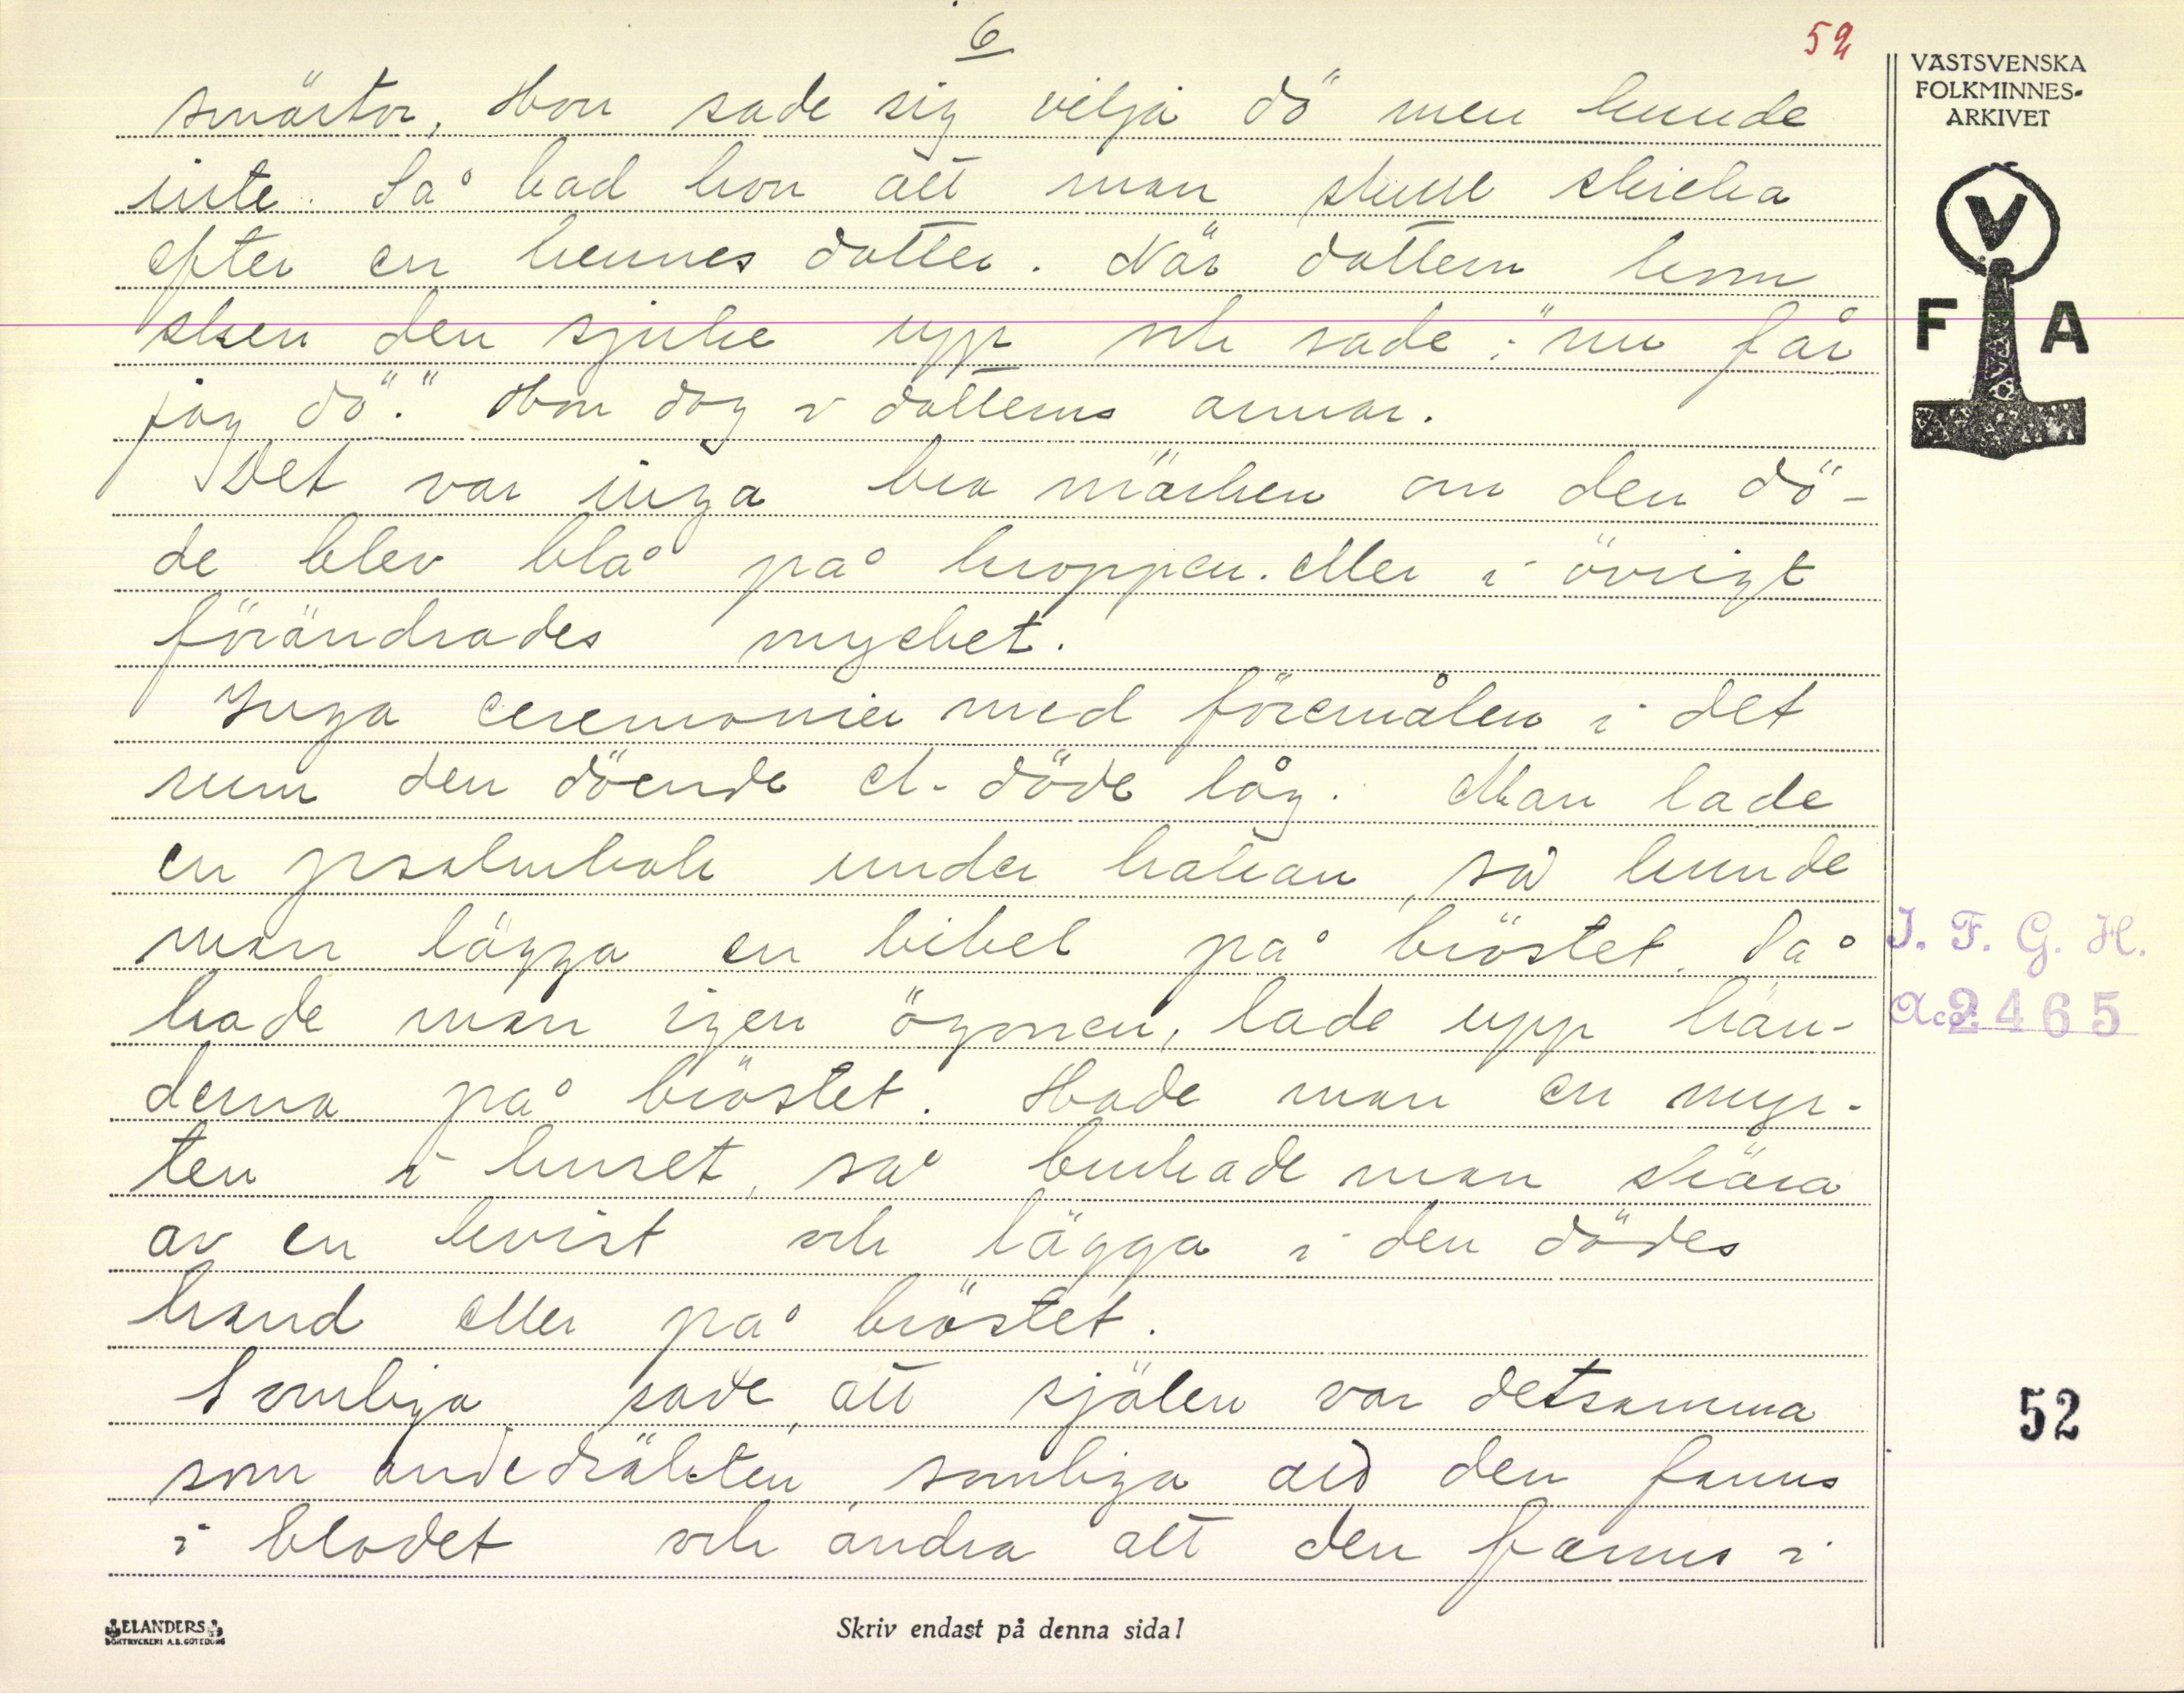 6
52
VÄSTSVENSKA
FOLKMINNES-
ARKIVET
V
F A
smärtor, Hon sade sig vilja dö men kunde
inte. Så bad hon att man skulle skicka
efter en hennes dotter. När dottern kom
sken den sjuke upp och sade: "nu får
jag dö". Hon dog i dotterns armar.
Det var inga bra märken om den dö-
de blev blå på kroppen eller i övrigt
förändrades mycket.
Inga ceremonier med föremålen i det
rum den döende el. döde låg. Man lade
en psalmbok under hakan, så kunde
man lägga en bibel på bröstet. Så
hade man igen ögonen, lade upp hän-
derna på bröstet. Hade man en myr-
ten i huset, så brukade man skära
av en kvist och lägga i den dödes
hand eller på bröstet.
Somliga sade, att själen var detsamma
som andedräkten, somliga att den fanns
i blodet och andra att den fanns i
I. F. G. H.
Acc. 2465
52
ELANDERS
BOKTRYCKERI A.B. GÖTEBORG
Skriv endast på denna sida!